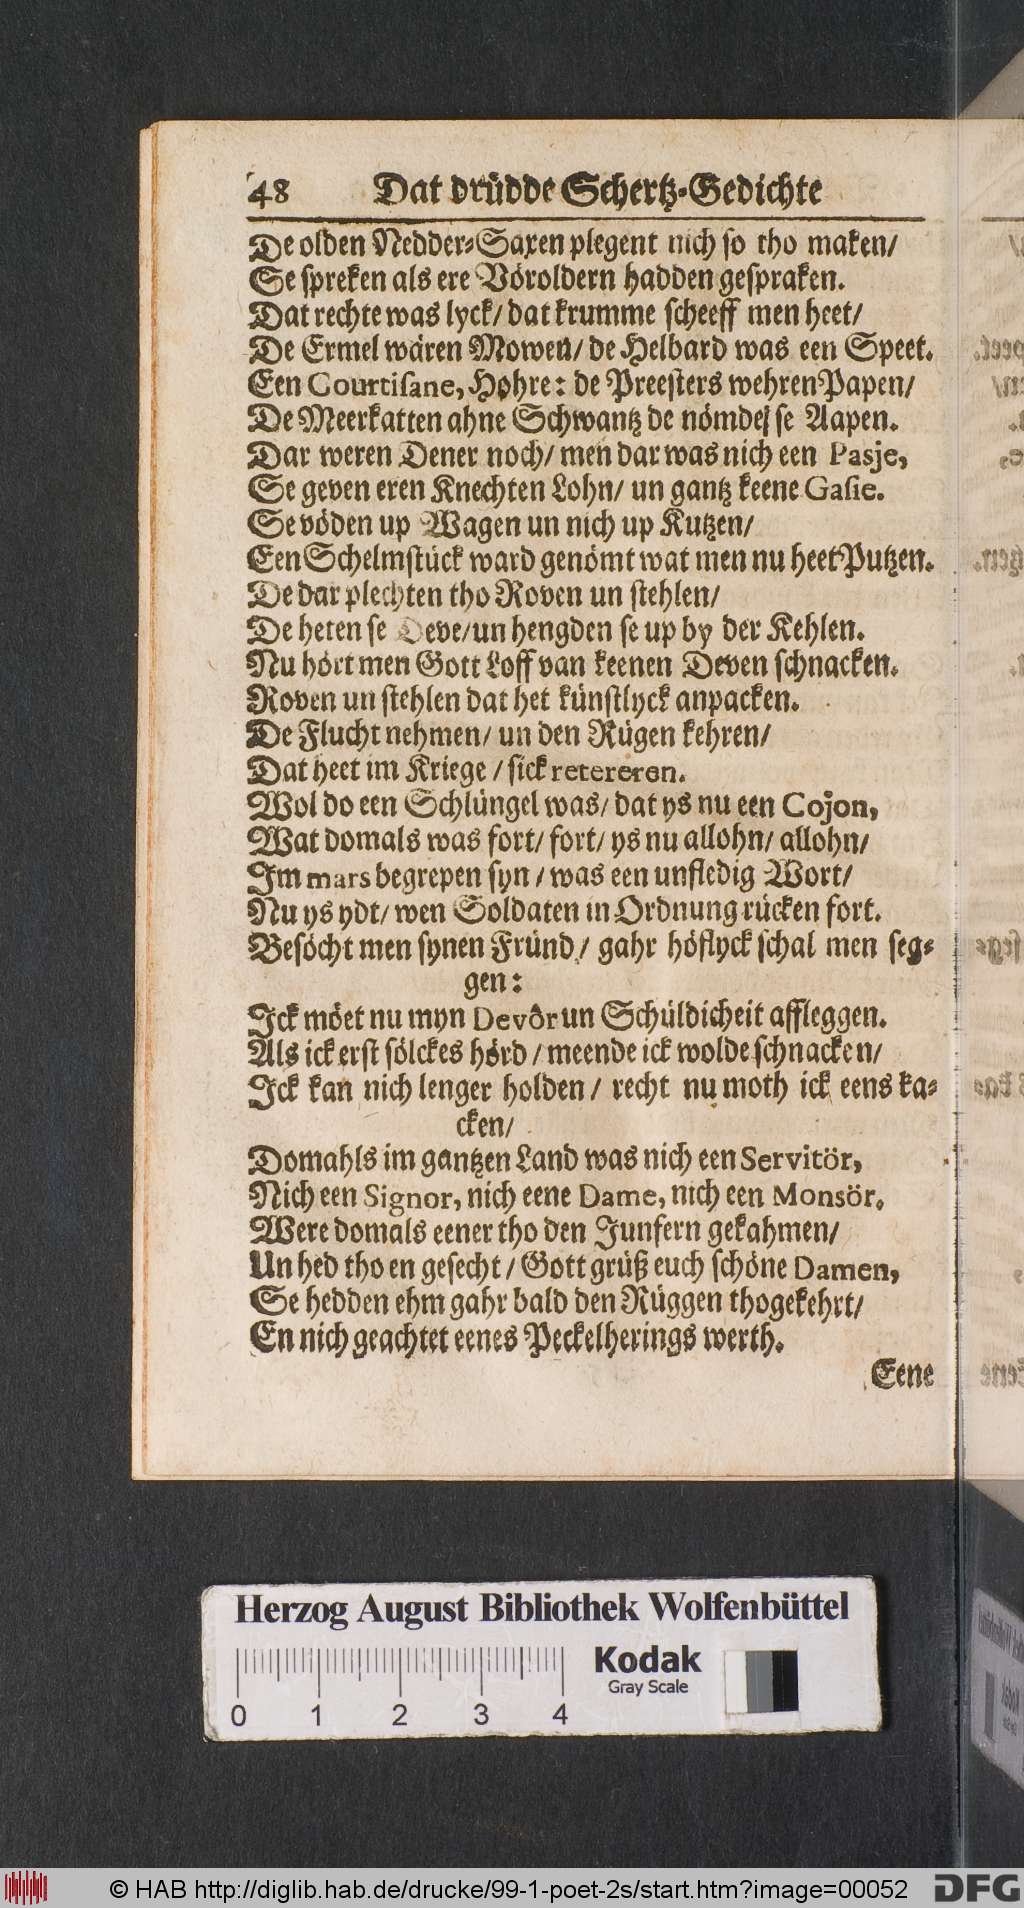 48 Dat drüdde Schertz-Gedichte
De olden Nedder-Saxen plegent nich so tho maken/
Se spreken als ere Vöroldern hadden gespraken.
Dat rechte was lyck/ dat krumme scheeff men heet/
De Ermel wären Mowen/ de Helbard was een Speet.
Een Courtisane, Hohre: de Preesters wehren Papen/
De Meerkatten ahne Schwantz de nömde se Aapen.
Dar weren Dener noch/ men dar was nich een Pasje,
Se geven eren Knechten Lohn/ un gantz keene Gasie.
Se vöden up Wagen un nich up Kutzen/
Een Schelmstück ward genömt wat men nu heet Putzen.
De dar plechten tho Roven un stehlen/
De heten se Deve/ un hengden se up by der Kehlen.
Nu hört men Gott Loff van keenen Deven schnacken.
Roven un stehlen dat het künstlyck anpacken.
De Flucht nehmen/ un den Rügen kehren/
Dat heet im Kriege / sick retereren.
Wol do een Schlüngel was/ dat ys nu een Cojon,
Wat domals was fort/ fort/ ys nu allohn/ allohn/
Im mars begrepen syn / was een unfledig Wort/
Nu ys ydt/ wen Soldaten in Ordnung rücken fort.
Besöcht men synen Fründ / gahr höflyck schal men seg-
gen:
Ick möet nu myn Devôr un Schüldicheit affleggen.
Als ick erst sölckes hörd / meende ick wolde schnacken/
Ick kan nich lenger holden / recht nu moth ick eens ka-
cken/
Domahls im gantzen Land was nich een Servitör,
Nich een Signor, nich eene Dame, nich een Monsör.
Were domals eener tho den Junfern gekahmen/
Un hed tho en gesecht / Gott grüß euch schöne Damen,
Se hedden ehm gahr bald den Rüggen thogekehrt/
En nich geachtet eenes Peckelherings werth.
Eene
Herzog August Bibliothek Wolfenbüttel
Kodak
Gray Scale
0 1 2 3 4
© HAB http://diglib.hab.de/drucke/99-1-poet-2s/start.htm?image=00052
DFG